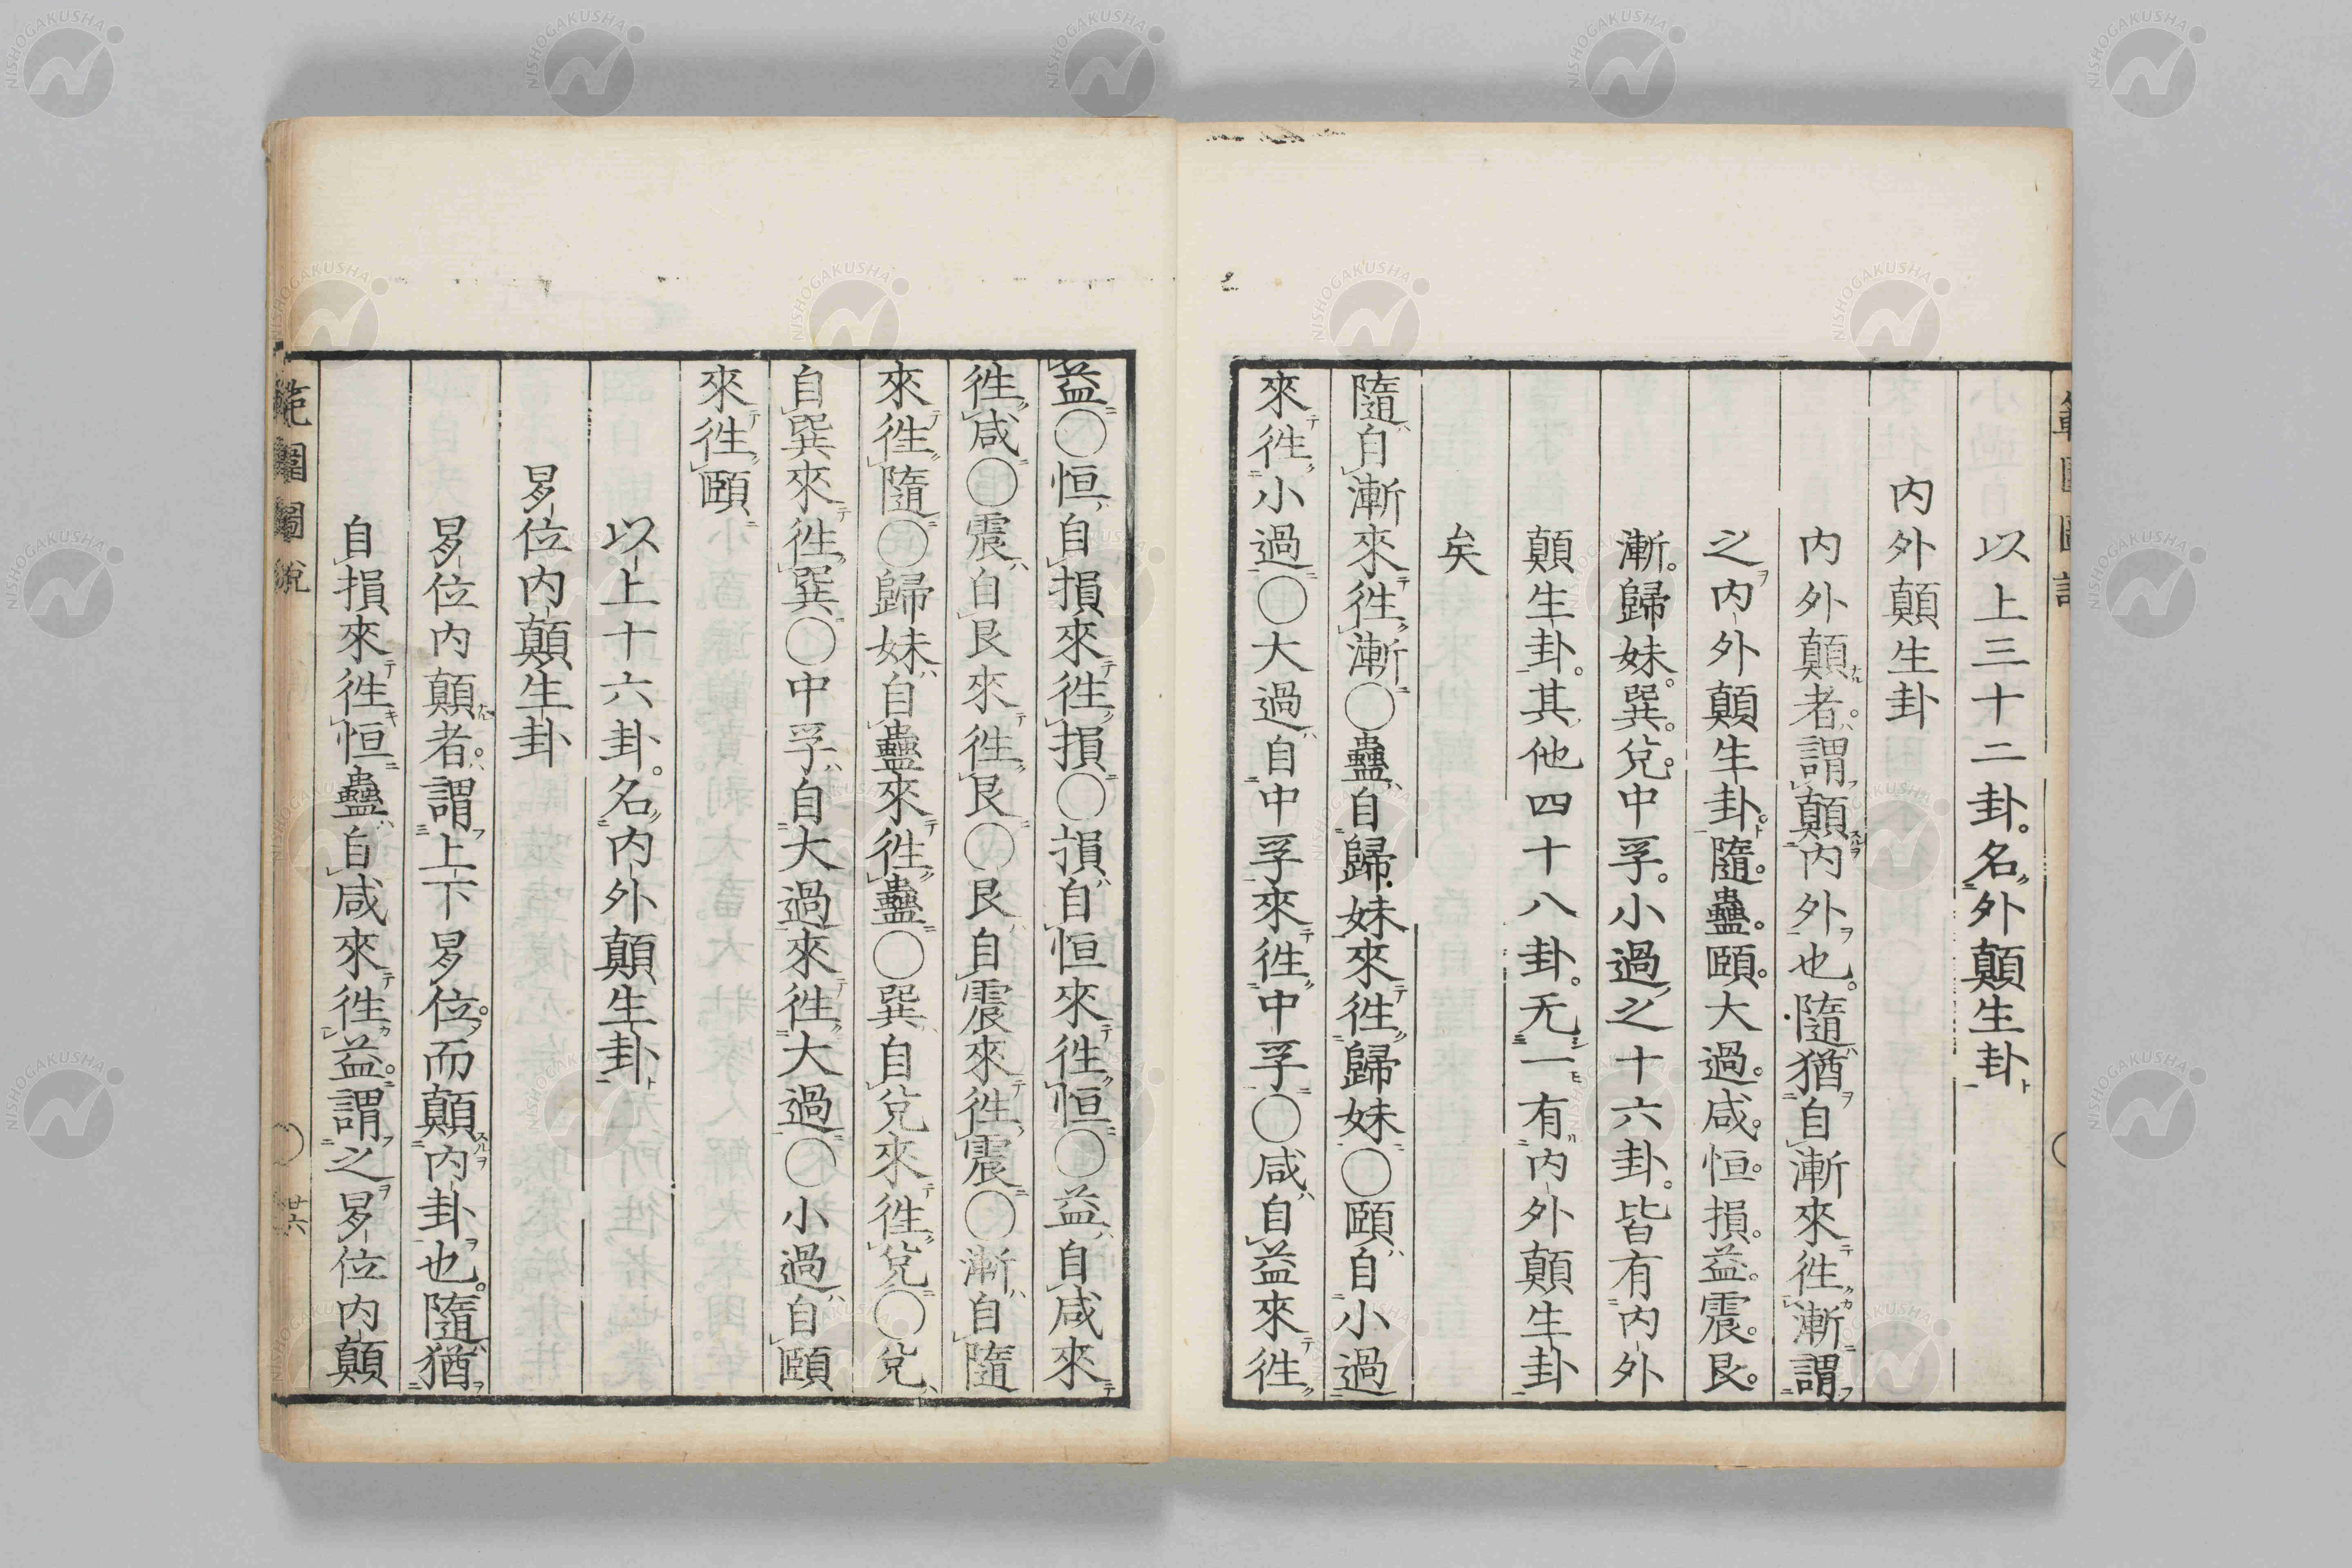 以上三十二卦。名外顛生卦
内外顛生卦
内外顛者。謂顛内外也。隨猶自漸來徃漸謂
之内外顛生卦。隨。蠱。頤。大過。咸。恒。損。益。震。艮。
漸。歸妹。巽。兌。中孚。小過之十六卦。皆有内外
顛生卦。其他四十八卦。无一有内外顛生卦
矣
隨自漸來徃漸〇蠱自歸妹來徃歸妹〇頤自小過
來徃小過〇大過自中孚來徃中孚〇咸自益來徃
益〇恒自損來徃損〇損自恒來徃恒〇益自咸來
徃咸〇震自艮來徃艮〇艮自震來徃震〇漸自隨
來徃隨〇歸妹自蠱來徃蠱〇巽自兌來徃兌〇兌
自巽來徃巽〇中孚自大過來徃大過〇小過自頤
來徃頤
以上十六卦。名内外顛生卦
易位内顛生卦
易位内顛者。謂上下易位。而顛内卦也。隨猶
自損來徃恒蠱自咸來徃益。謂之易位内顛
範圍圖説
〇
廿六
NISHOGAKUSHA